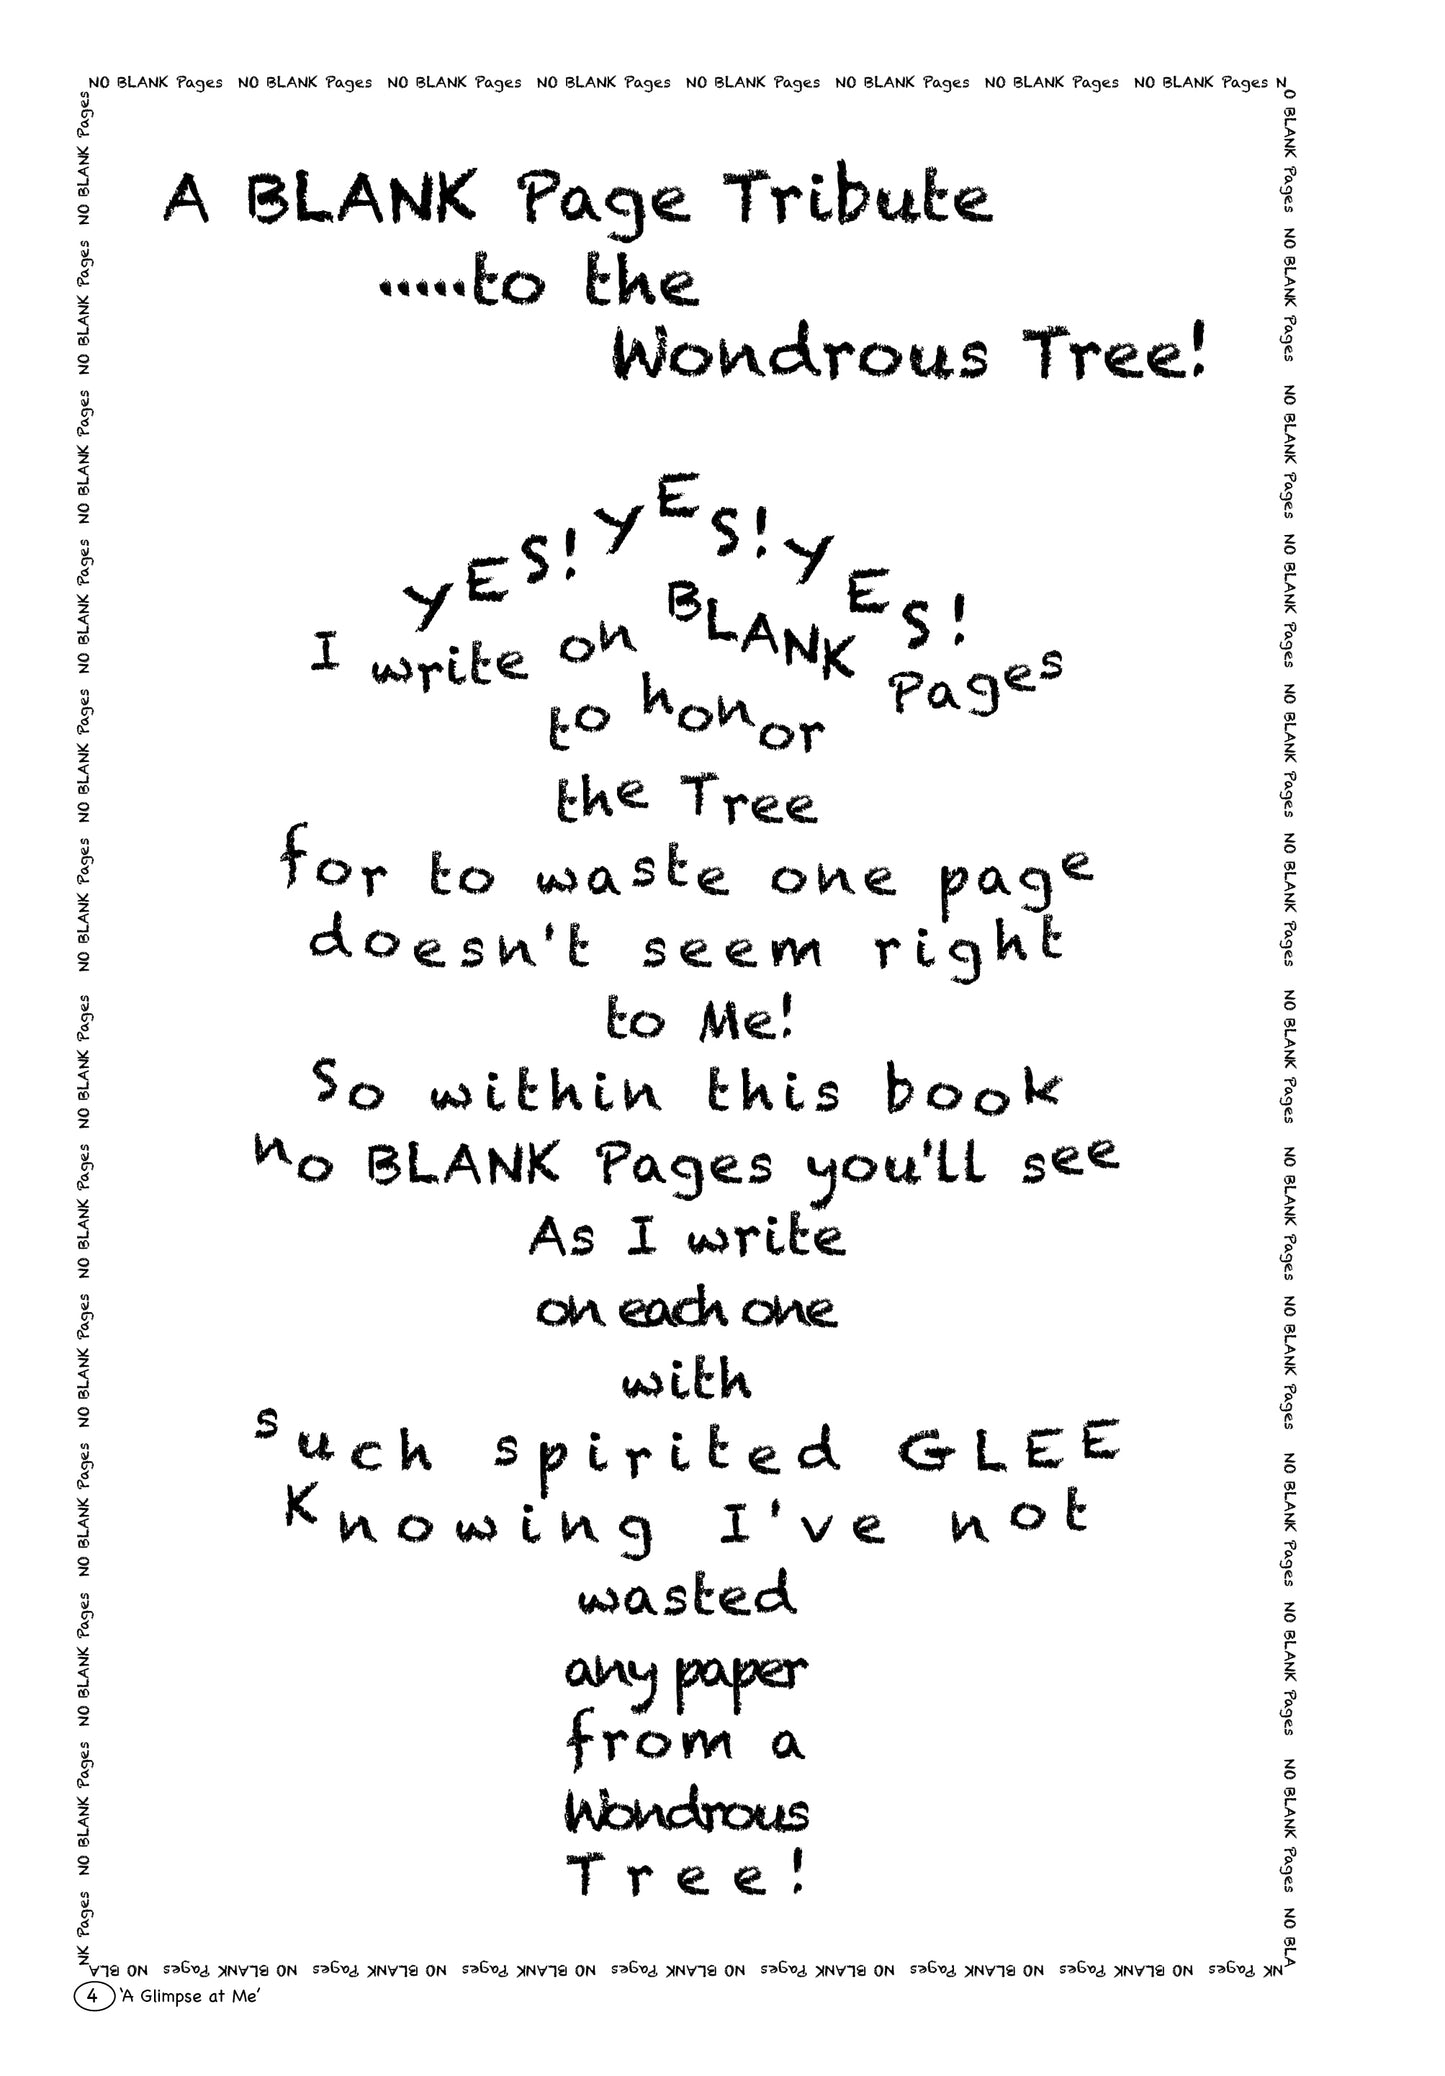 NO BLANK Pages NO BLANK Pages NO BLANK Pages NO BLANK Pages NO BLANK Pages NO BLANK Pages NO BLANK Pages NO BLANK Pages N
O BLANK Pages NO BLANK Pages NO BLANK Pages NO BLANK Pages NO BLANK Pages NO BLANK Pages NO BLANK Pages NO BLANK Pages NO BLANK Pages NO BLANK Pages NO BLANK Pages NO BLANK Pages NO BLA
A BLANK Page Tribute
.....to the
Wondrous Tree!
YES! YES! YES!
I write on BLANK Pages
to honor
the Tree
for to waste one page
doesn't seem right
to Me!
So within this book
no BLANK Pages you'll see
As I write
on each one
with
such spirited GLEE
Knowing I've not
wasted
any paper
from a
Wondrous
Tree!
NK Pages NO BLANK Pages NO BLANK Pages NO BLANK Pages NO BLANK Pages NO BLANK Pages NO BLANK Pages NO BLANK Pages NO BLA
NK Pages NO BLANK Pages NO BLANK Pages NO BLANK Pages NO BLANK Pages NO BLANK Pages NO BLANK Pages NO BLANK Pages NO BLANK Pages NO BLANK Pages NO BLANK Pages NO BLANK Pages NO BLANK Pages
4 'A Glimpse at Me'